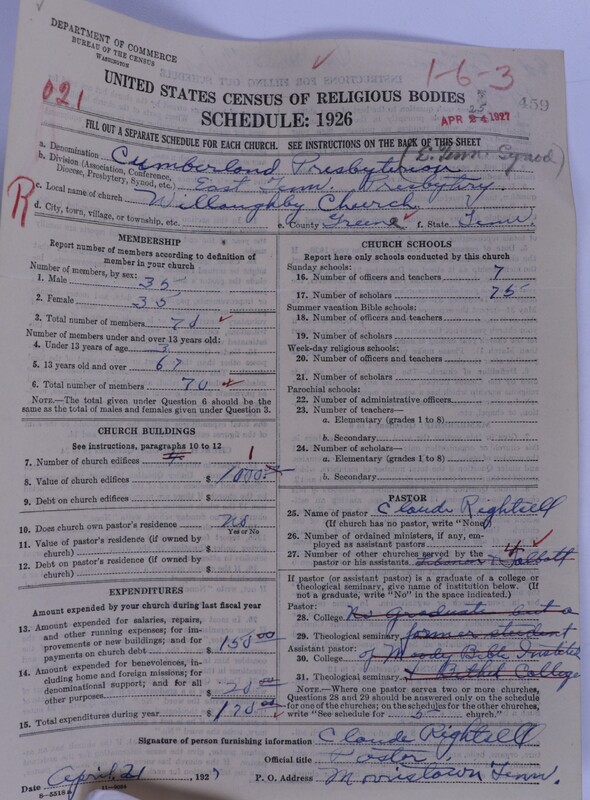 DEPARTMENT OF COMMERCE
BUREAU OF THE CENSUS
WASHINGTON
1-6-3
021
UNITED STATES CENSUS OF RELIGIOUS BODIES
459
SCHEDULE: 1926
25
APR 24 1927
FILL OUT A SEPARATE SCHEDULE FOR EACH CHURCH. SEE INSTRUCTIONS ON THE BACK OF THIS SHEET
a. Denomination Cumberland Presbyterian (E. Tenn. Synod)
b. Division (Association, Conference, Diocese, Presbytery, Synod, etc.) East Tenn. Presbytery.
R
c. Local name of church Willoughby Church
d. City, town, village, or township, etc. e. County Greene f. State Tenn.
MEMBERSHIP
Report number of members according to definition of
member in your church
Number of members, by sex:
1. Male 35
2. Female 35
3. Total number of members 70
Number of members under and over 13 years old:
4. Under 13 years of age 3
5. 13 years old and over 67
6. Total number of members 70
NOTE.—The total given under Question 6 should be
same as the total of males and females given under Question 3.
CHURCH BUILDINGS
See instructions, paragraphs 10 to 12
7. Number of church edifices 1
8. Value of church edifices $ 1000.
9. Debt on church edifices $
10. Does church own pastor's residence No
Yes or No
11. Value of pastor's residence (if owned by
church) $
12. Debt on pastor's residence (if owned by
church) $
EXPENDITURES
Amount expended by your church during last fiscal year
13. Amount expended for salaries, repairs,
and other running expenses; for im-
provements or new buildings; and for
payments on church debt $ 150 00
14. Amount expended for benevolences, in-
cluding home and foreign missions; for
denominational support; and for all
other purposes $ 20 00
15. Total expenditures during year $ 170 00
CHURCH SCHOOLS
Report here only schools conducted by this church
Sunday schools:
16. Number of officers and teachers 7
17. Number of scholars 75
Summer vacation Bible schools:
18. Number of officers and teachers
19. Number of scholars
Week-day religious schools:
20. Number of officers and teachers
21. Number of scholars
Parochial schools:
22. Number of administrative officers
23. Number of teachers—
a. Elementary (grades 1 to 8)
b. Secondary
24. Number of scholars—
a. Elementary (grades 1 to 8)
b. Secondary
PASTOR
25. Name of pastor Claude Rightsell
(If church has no pastor, write "None")
26. Number of ordained ministers, if any, em-
ployed as assistant pastors
27. Number of other churches served by the
pastor or his assistants 4
If pastor (or assistant pastor) is a graduate of a college or
theological seminary, give name of institution below. (If
not a graduate, write "No" in the space indicated.)
Pastor:
28. College No graduate but a
29. Theological seminary former student
Assistant pastor:
30. College of Moody Bible Institute
31. Theological seminary & Bethel College
NOTE.—Where one pastor serves two or more churches,
Questions 28 and 29 should be answered only on the schedule
for one of the churches; on the schedules for the other churches,
write "See schedule for 5 church."
Signature of person furnishing information Claude Rightsell
Official title Pastor
Date April 21, 1927 P. O. Address Morristown Tenn.
6-5518